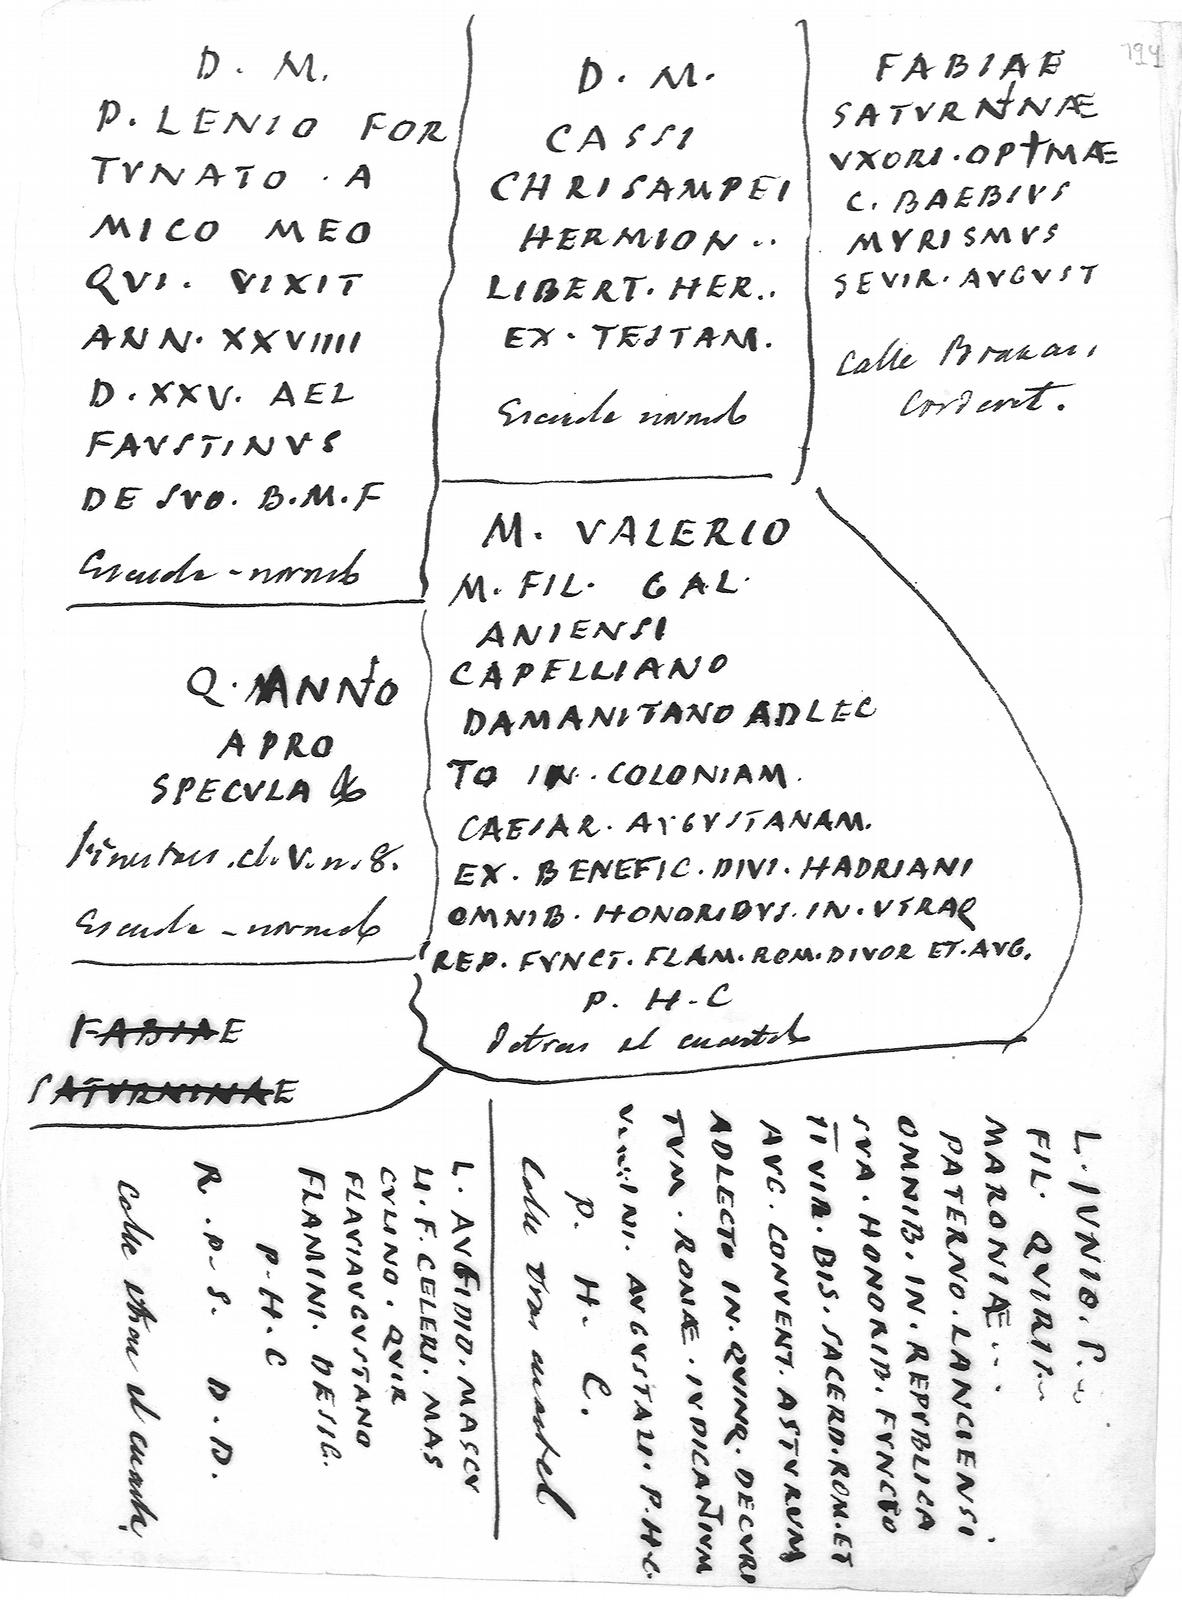 D. M.
P. LENIO FOR
TVNATO . A
MICO MEO
QVI. VIXIT
ANN. XXVIIII
D. XXV. AEL
FAVSTINVS
DE SVO. B.M.F
Escuela normal
D. M.
CASSI
CHRISAMPEI
HERMION..
LIBERT. HER..
EX. TESTAM.
Escuela normal
194
FABIAE
SATVRNINÆ
VXORI. OPTIMÆ
C. BAEBIVS
MYRISMVS
SEVIR. AVGVST
Calle
Q. ANNIO
APRO
SPECVLA
cl. V. n. 8.
Escuela normal
M. VALERIO
M. FIL. GAL.
ANIENSI
CAPELLIANO
DAMANITANO ADLEC
TO IN. COLONIAM.
CAESAR. AVGVSTANAM.
EX. BENEFIC. DIVI. HADRIANI
OMNIB. HONORIBVS. IN. VTRAQ
REP. FVNCT. FLAM. ROM. DIVOR ET. AVG.
P. H. C
Detras el cuartel
FABIAE
SATVRNINAE
L. IVNIO. P..
FIL. QVIRI..
MARONIÆ...
PATERNO. LANCIENSI
OMNIB. IN. REPVBLICA
SVA. HONORIB. FVNCTO
II VIR. BIS. SACERD. ROM. ET
AVG. CONVENT. ASTVRVM
ADLECTO IN. QVINQ. DECVRI
TVM. ROMÆ. IVDICANTIVM
INI. AVGVSTALI. P.H.C.
P. H. C.
Calle tras cuartel
L. AVFIDIO. MASCV
LI. F. CELERI. MAS
CVLINO. QVIR
FLAVIAVGVSTANO
FLAMINI. DESIG.
P. H. C
R. P. S. D. D.
Calle